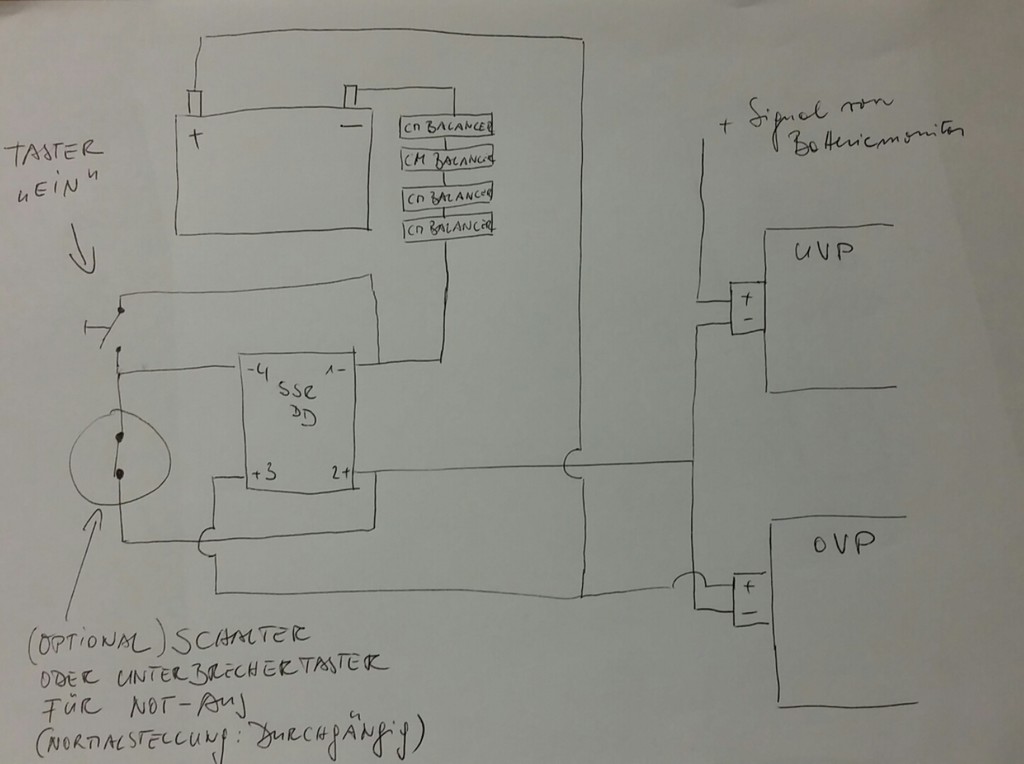 TASTER
"EIN"
+
-
CM BALANCER
CM BALANCER
CM BALANCER
CM BALANCER
+ Signal von
Batteriemonitor
UVP
+
-
-4
1-
SSR
DD
+3
2+
OVP
+
-
(OPTIONAL) SCHALTER
ODER UNTERBRECHERTASTER
FÜR NOT-AUS
(NORMALSTELLUNG: DURCHGÄNGIG)